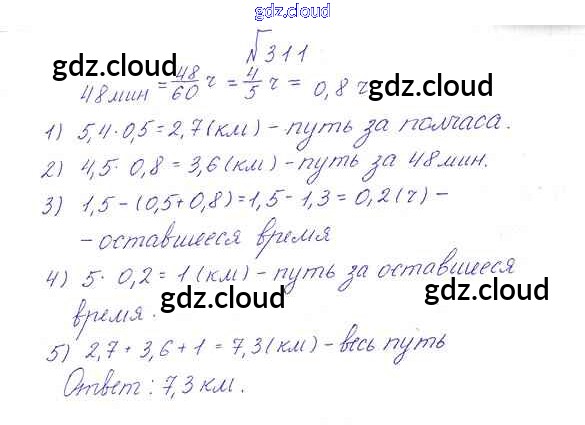 gdz.cloud
№ 311
gdz.cloud
48 мин = 48/60 ч = 4/5 ч = 0,8 ч
gdz.cloud
1) 5,4 · 0,5 = 2,7 (км) - путь за полчаса.
2) 4,5 · 0,8 = 3,6 (км) - путь за 48 мин.
3) 1,5 - (0,5 + 0,8) = 1,5 - 1,3 = 0,2 (ч) -
- оставшееся время
4) 5 · 0,2 = 1 (км) - путь за оставшееся
gdz.cloud
gdz.cloud
время.
5) 2,7 + 3,6 + 1 = 7,3 (км) - весь путь
Ответ: 7,3 км.